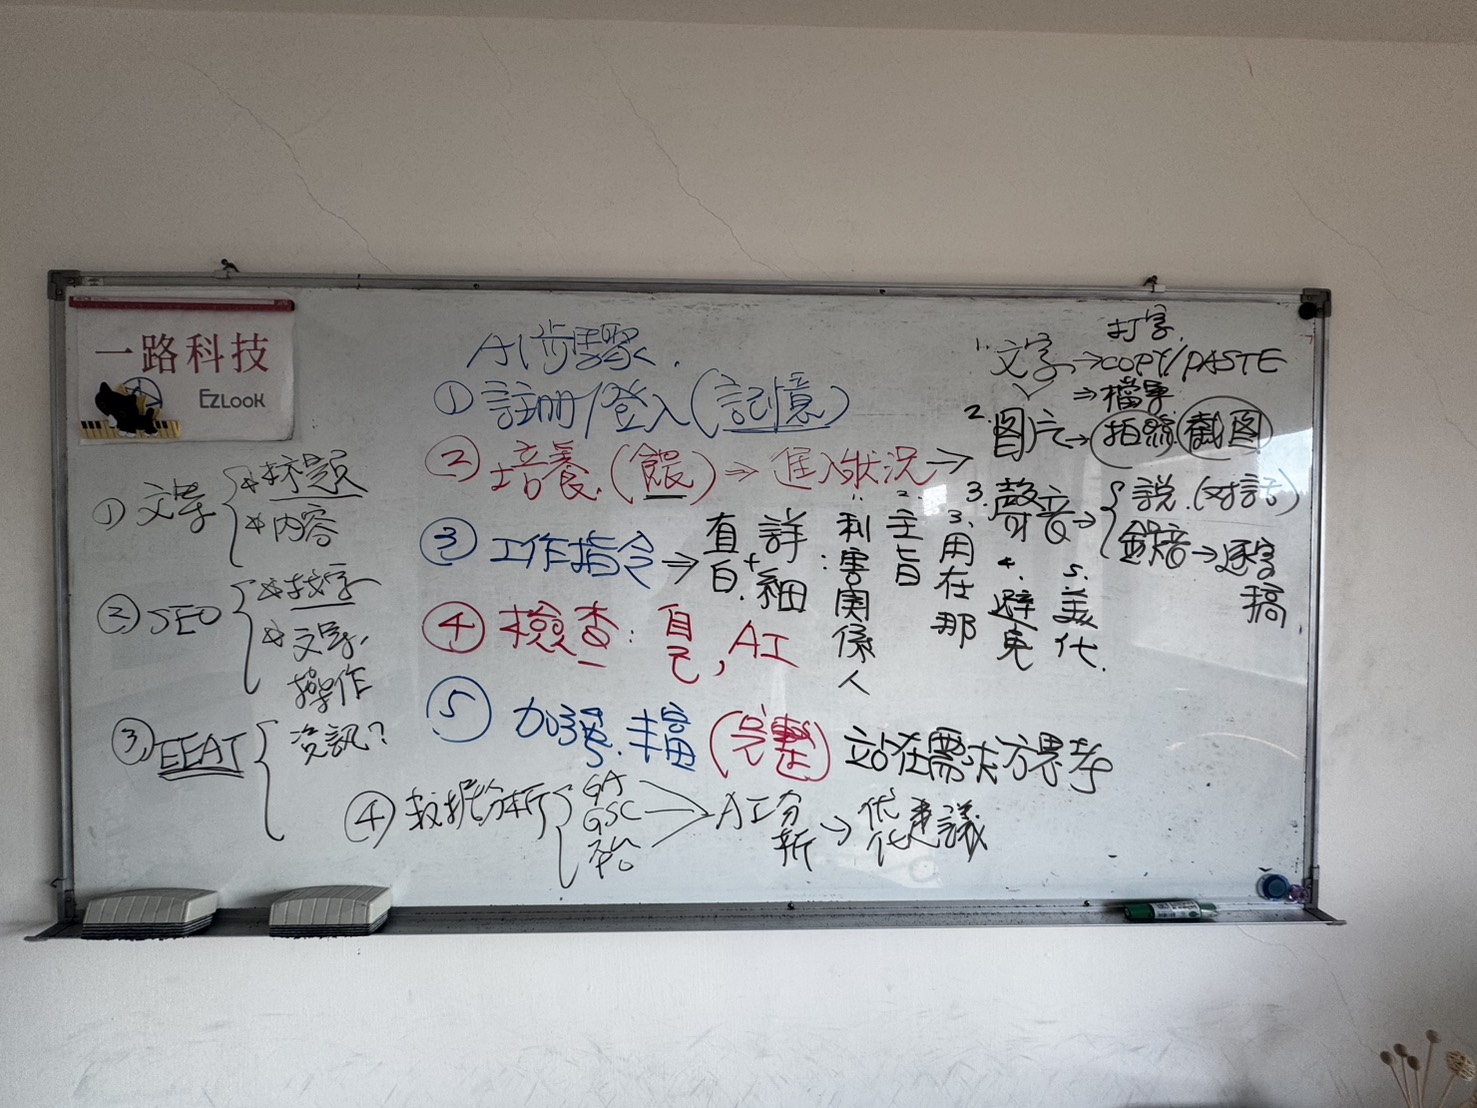 一路科技
EZLOOK
AI步驟.
① 註冊/登入(記憶)
② 培養.(餵)→進入狀況→
③ 工作指令→直白.+詳細:
1.利害関係人
2.主旨
3.用在那
4.避免
5.迭代.
④ 檢查:自己,AI
⑤ 加強.丰富(完整)站在需求方思考
打字.
1.文字→COPY/PASTE
⇒檔案
2.圖片→拍照 截图
3.聲音→說.(対話)
錄音→逐字稿
① 文案
*标题
*内容
② SEO
*文字
*文案.
操作
③ EEAT
資訊?
④ 数据分析
GA
GSC
AI分析→优化建議